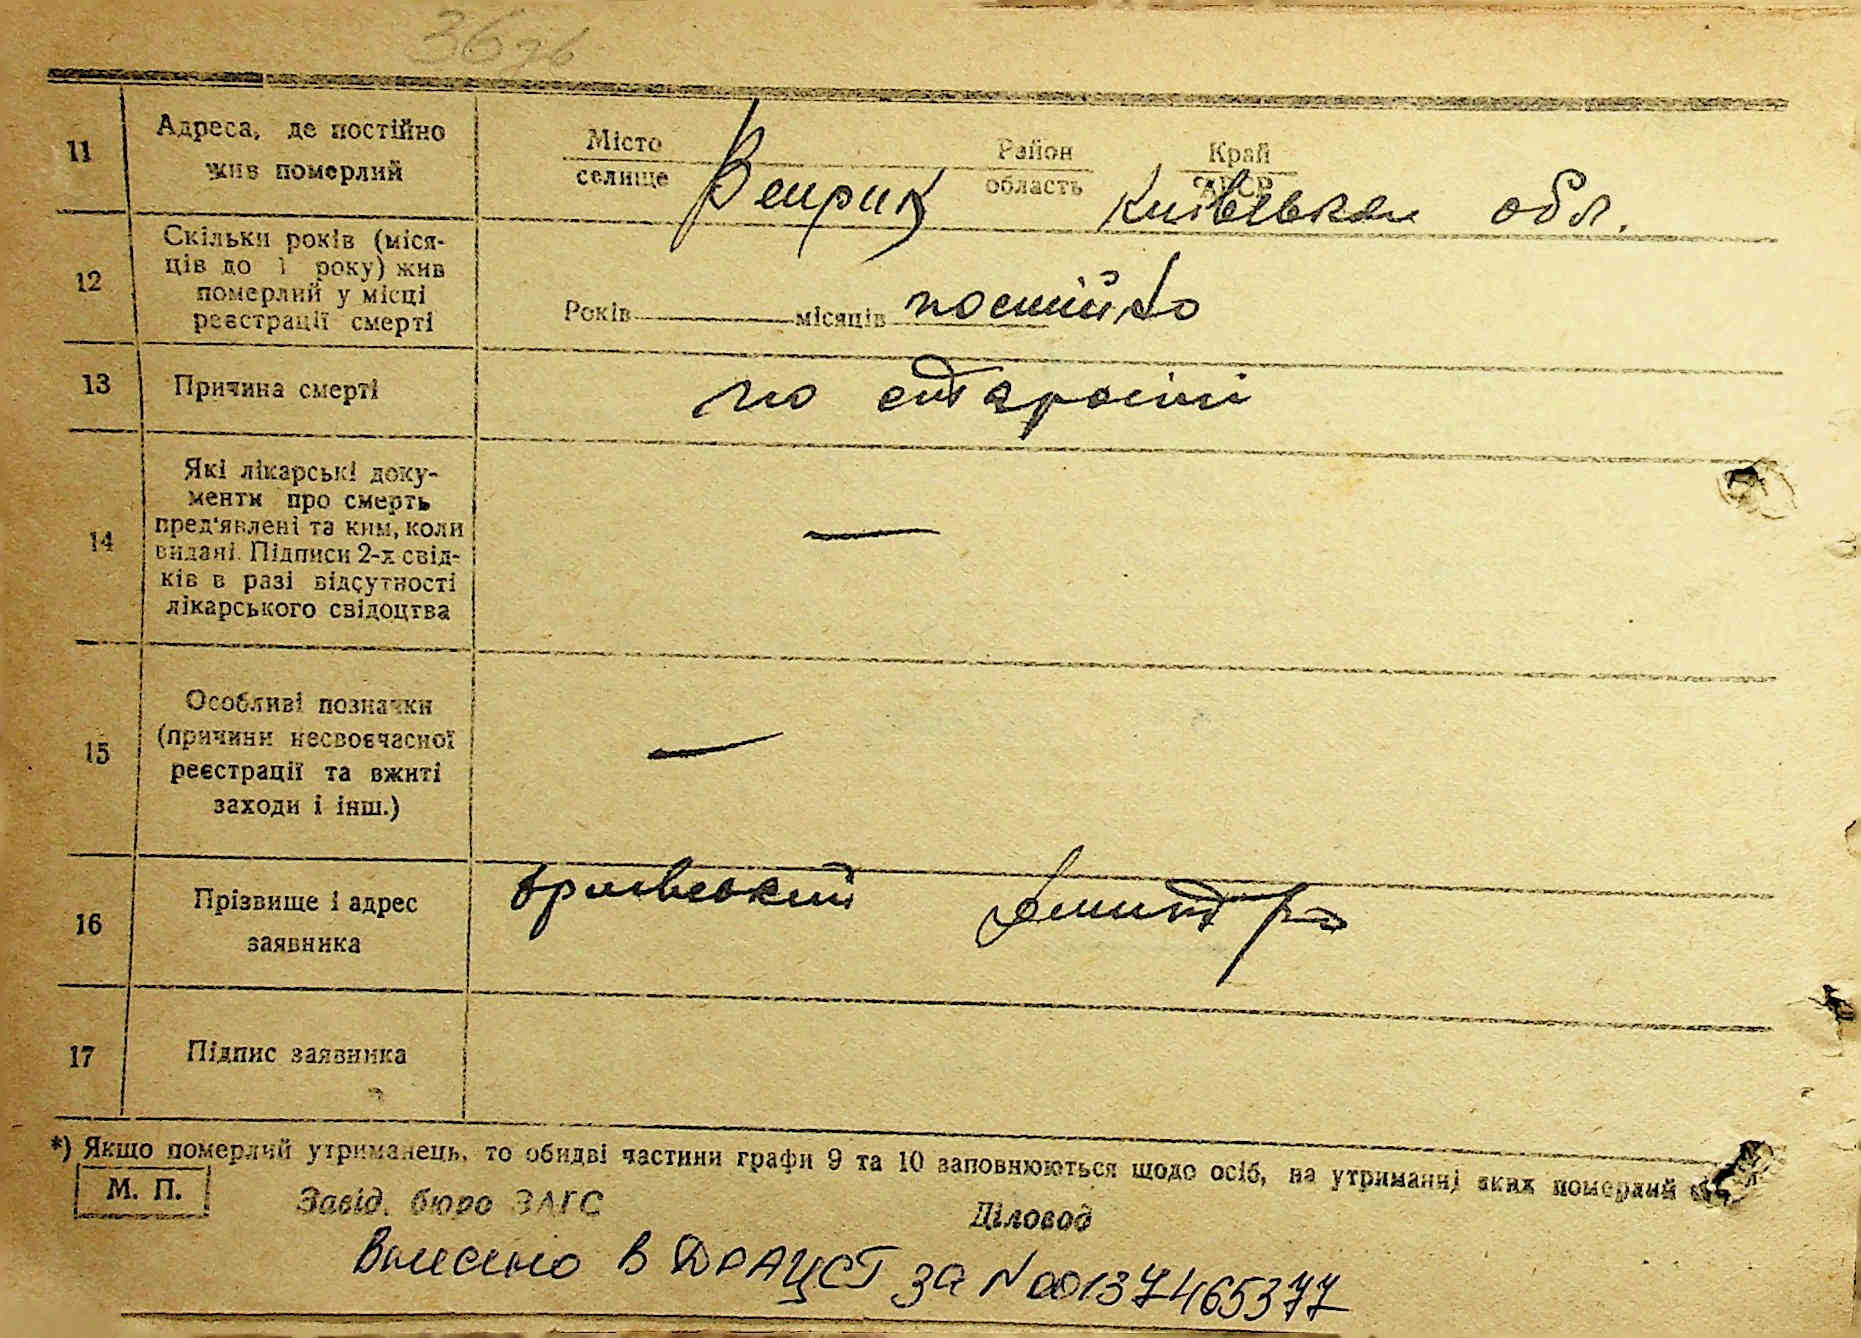 36
11 Адреса, де постійно жив померлий
Місто селище Веприк Район область Край АРСР Київська обл.
12 Скільки років (місяців до 1 року) жив померлий у місці реєстрації смерті
Років місяців постійно
13 Причина смерті
по старості
14 Які лікарські документи про смерть пред'явлені та ким, коли видані. Підписи 2-х свідків в разі відсутності лікарського свідоцтва
—
15 Особливі позначки (причини несвоєчасної реєстрації та вжиті заходи і інш.)
—
16 Прізвище і адрес заявника
17 Підпис заявника
*) Якщо померлий утриманець, то обидві частини графи 9 та 10 заповнюються щодо осіб, на утриманні яких померлий
М. П.
Завід. бюро ЗАГС Діловод
Внесено в ДРАЦСГ за N 00137465377